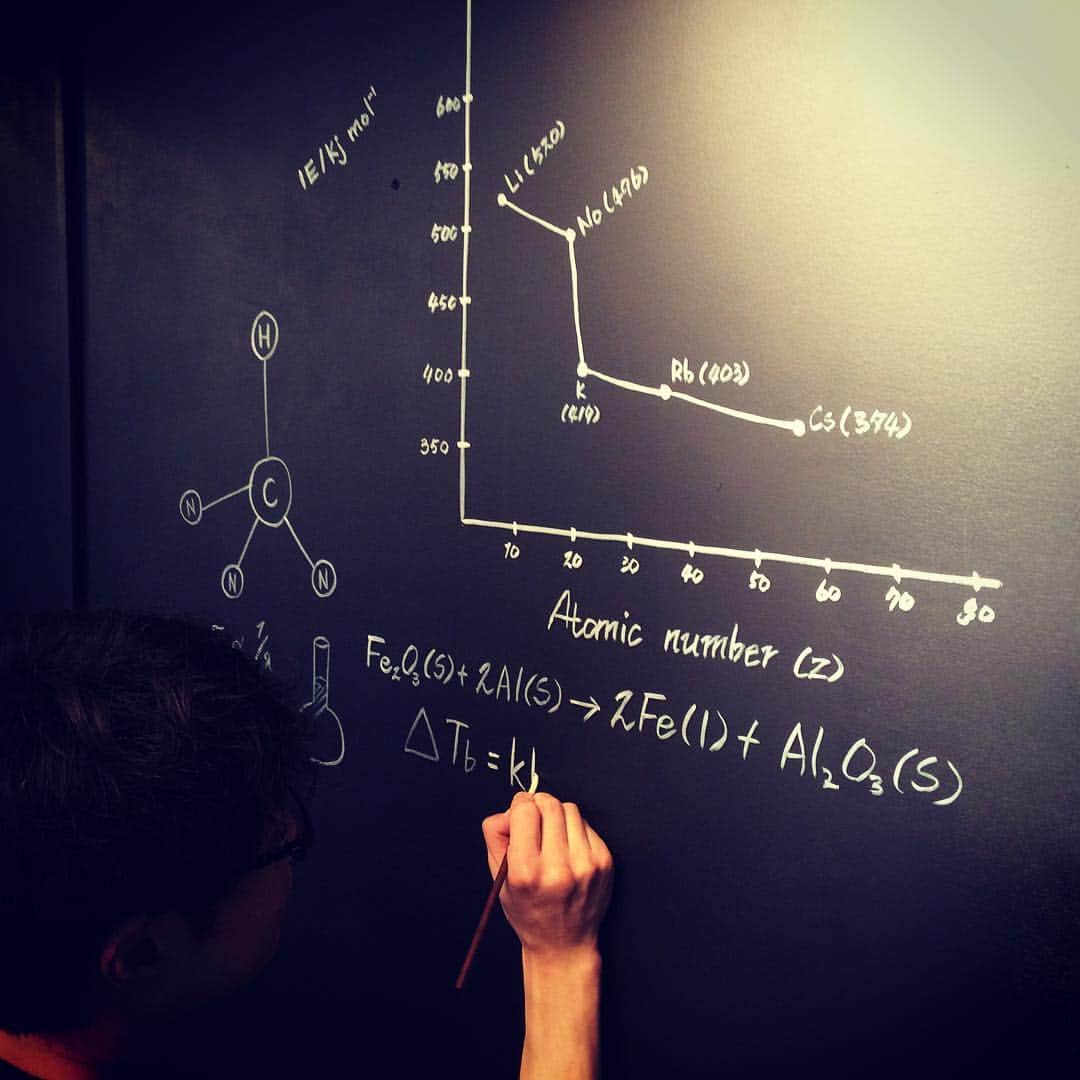 IE/Kj mol⁻¹
600
550
500
450
400
350
Li(520)
No(496)
K
(419)
Rb(403)
Cs(374)
10
20
30
40
50
60
70
80
Atomic number (z)
H
C
N
N
N
Fe₂O₃(S)+ 2Al(S) → 2Fe(l)+ Al₂O₃(S)
ΔTb = k